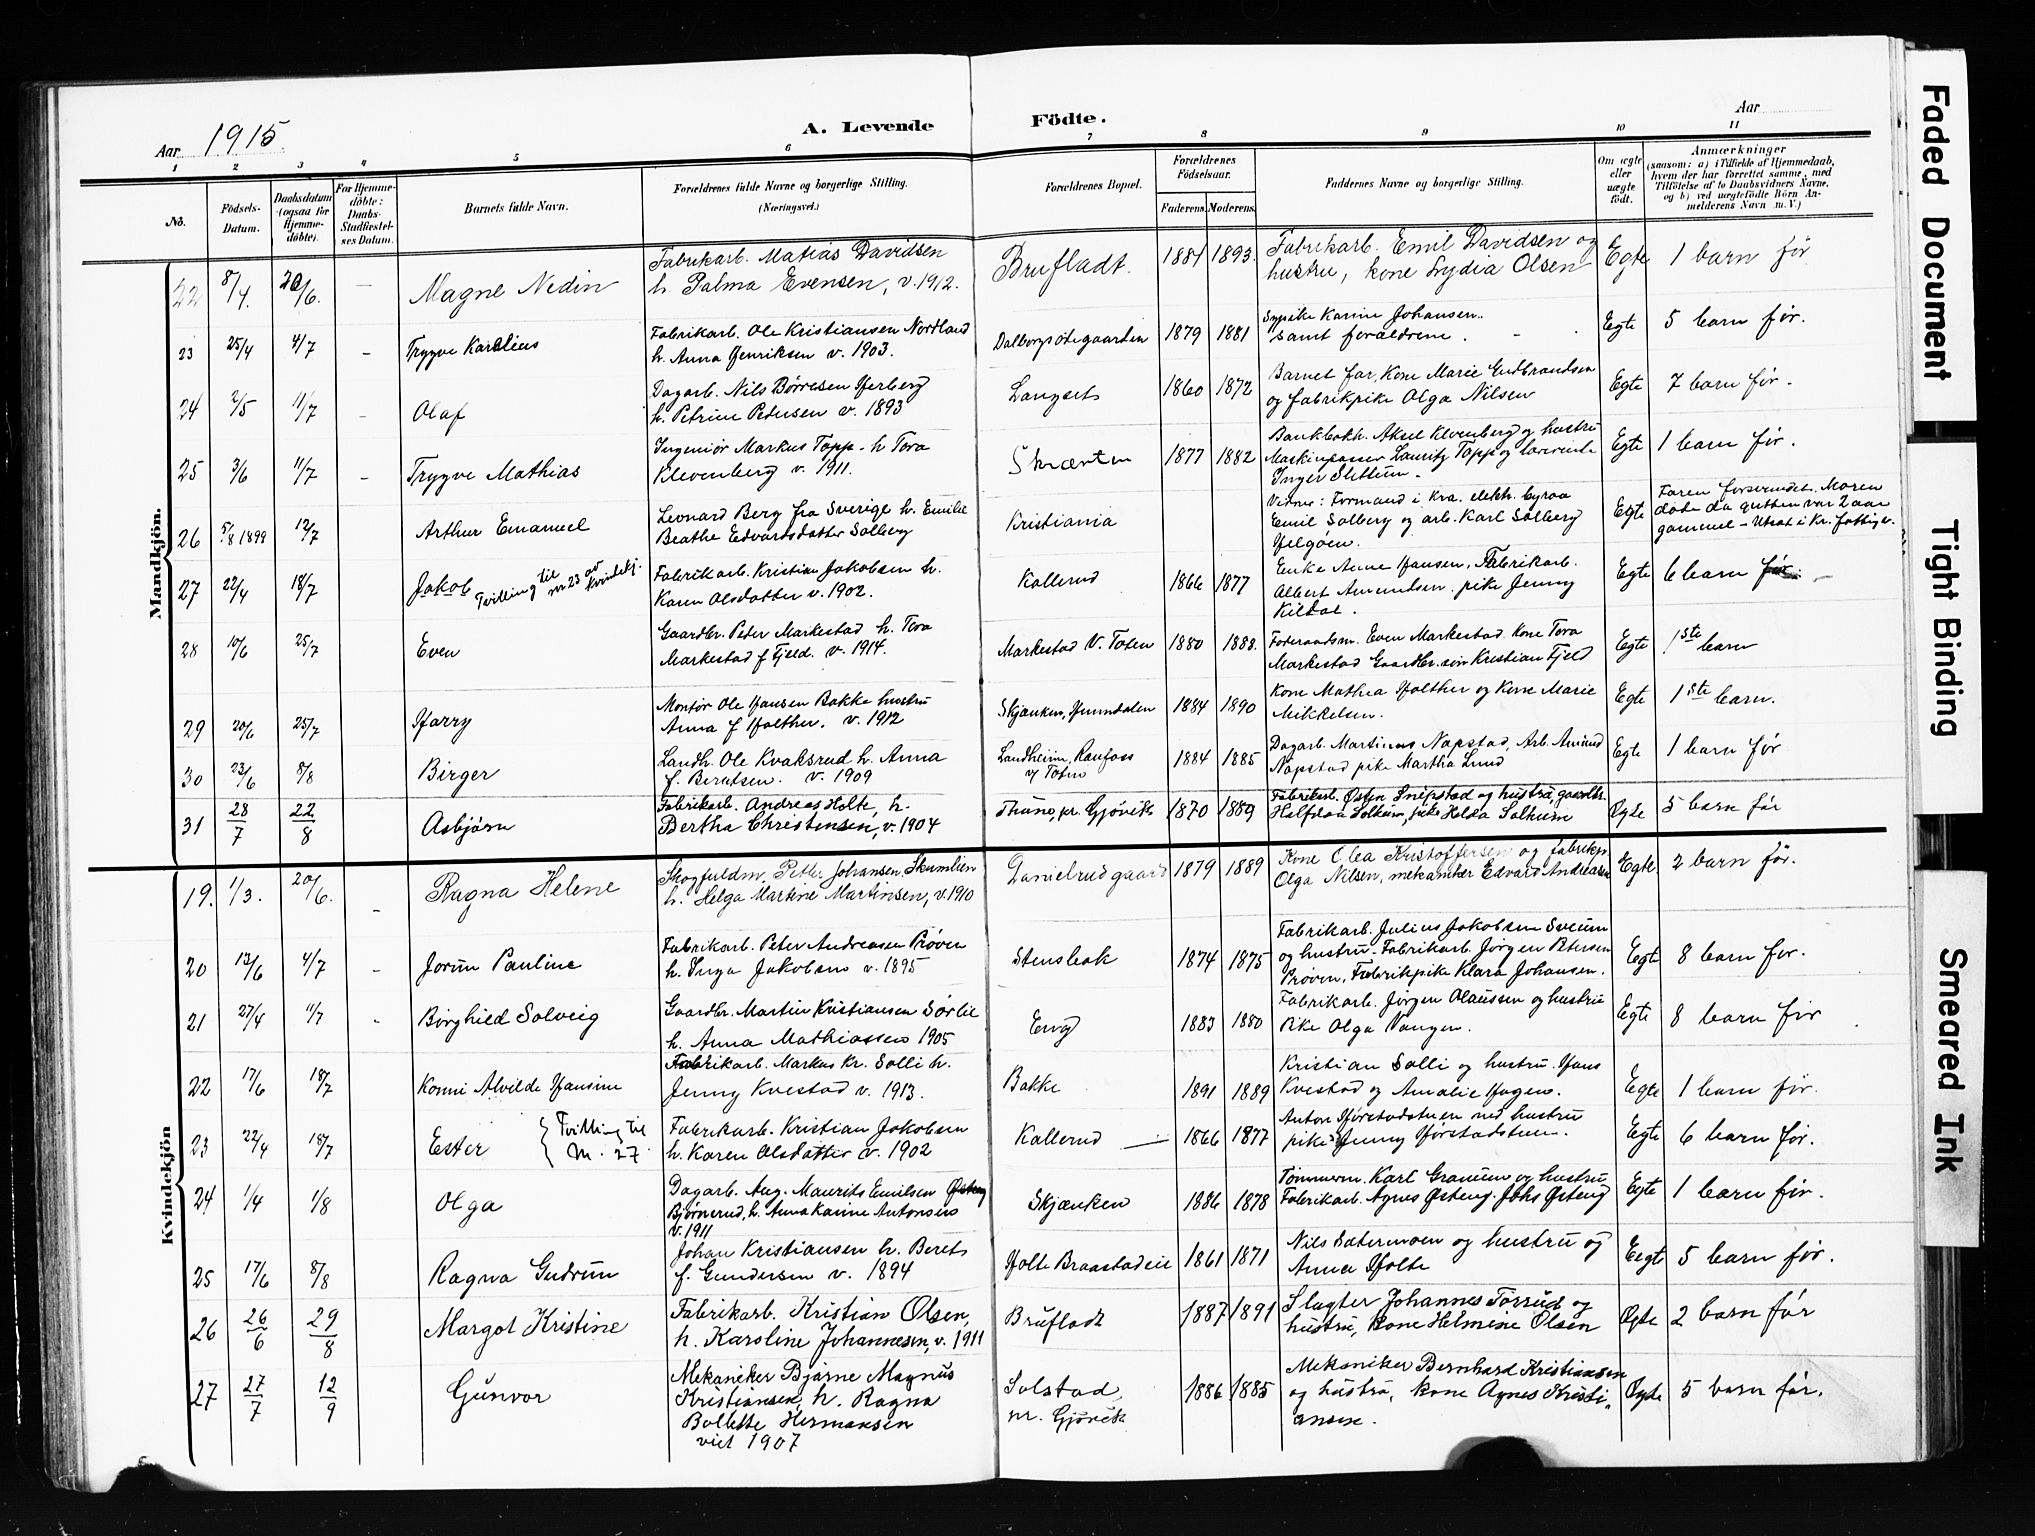 Aar 1915.
A. Levende Födte.
Aar
1 2 3 4 5 6 7 8 9 10 11
No.
Födsels-Datum.
Daabsdatum (ogsaa for Hjemme-döbte).
For Hjemme-döbte: Daabs-Stadfæstel-ses Datum.
Barnets fulde Navn.
Forældrenes fulde Navne og borgerlige Stilling. (Næringsvei.)
Forældrenes Bopæl.
Forældrenes Födselsaar.
Faderens. Moderens.
Faddernes Navne og borgerlige Stilling.
Om ægte eller uægte födt.
Anmærkninger
(saasom: a) i Tilfælde af Hjemmedaab,
hvem der har forrettet samme, med
Tilföielse af to Daabsvidners Navne,
og b) ved uægtefödte Börn An-
melderens Navn m. V.)
Mandkjön.
22 8/4. 20/6. — Magne Nedin
Fabrikarb. Matias Davidsen
h. Palma Evensen, v. 1912.
Brufladt. 1881 1893.
Fabrikarb. Emil Davidsen og
hustru, kone Lydia Olsen
Egte 1 barn før
23 25/4 4/7 – Trygve Karelius
Fabrikarb. Ole Kristiansen Nordland
h. Anna Henriksen v. 1903.
Dalborgsødegaarden 1879 1881
Sypike Karine Johansen..
samt forældrene.
Egte 5 barn før.
24 2/5 11/7 – Olaf
Dagarb. Nils Børresen Herberg
h. Petrine Pedersen v. 1893
Langset 1860 1872
Barnet far, Kone Marie Gudbrandsen
og fabrikpike Olga Nilsen
Egte 7 barn før.
25 3/6 11/7 – Trygve Mathias
Ingeniør Markus Topp - h Tora
Klevenberg v. 1911.
Skrænten 1877 1882
Bankbokh. Aksel Klevenberg og hustru
Maskinpasser Lauritz Topp og lærerinde
Inger Slettum.
Egte 1 barn før.
26 5/8 1899 12/7 Arthur Emanuel
Leonard Berg fra Sverige h. Emilie
Beathe Edvardsdatter Solberg
Kristiania
Vidner: Formand i Kra. elektr. byraa
Emil Solberg og arb. Karl Solberg
Helgøen.
Egte
Faren forsvundet. Moren
døde da gutten var 2 aar
gammel – Utsat i Kr. fattigv.
27 22/4 18/7 Jakob Tvilling til nr 23 av kvindekj.
Fabrikarb. Kristian Jakobsen h.
Karen Olsdatter v. 1902.
Kallerud 1866 1877
Enke Anne Hansen, Fabrikarb.
Albert Amundsen. pike Jenny
Kildal.
Egte 6 barn før.
28 10/6 25/7 Even
Gaardbr. Peter Markestad h. Tora
Markestad f Fjeld. v. 1914.
Markestad V. Toten 1880 1888.
Føderaadsm. Even Markestad. Kone Tora
Markestad Gaardbr. søn Kristian Fjeld
Egte 1ste barn
29 20/6 25/7 Harry
Montør Ole Hansen Bakke hustru
Anna f Holther. v. 1912
Skjænken, Hunndalen 1884 1890
Kone Mathea Holther og Kone Marie
Mikkelsen.
Egte 1ste barn.
30 23/6 8/8 Birger
Landh. Ole Kvaksrud h. Anna
f. Berntsen. v. 1909
Landheim, Raufoss
v/ Toten 1884 1885
Dagarb. Martinus Napstad, Arb. Amund
Napstad pike Martha Lund
Egte 1 barn før
31 28/7 22/8 Asbjørn
Fabrikarb. Andreas Holte, h.
Bertha Christensen, v. 1904
Thune, pr. Gjövik 1870 1889
Fabrikarb. Østen Snipstad og hustru, gaardbr.
Halfdan Solheim, pike Helda Solheim
Egte 5 barn før
Kvindekjön
19. 1/3. 20/6. – Ragna Helene
Skogfuldm. Petter Johansen Skumlien
h. Helga Martine Martinsen, v. 1910
Danielrudgaard 1879 1889
Kone Olea Kristoffersen og fabrikp.
Olga Nilsen, mekaniker Edvard Andreasen
Egte. 2 barn før.
20 13/6 4/7 – Jorun Pauline
Fabrikarb. Peter Andreasen Prøven
h. Inga Jakobsen v. 1895
Stensbak 1874 1875
Fabrikarb. Julius Jakobsen Sveum
og hustru. Fabrikarb. Jørgen Petersen
Prøven, Fabrikpike Klara Johansen.
Egte 8 barn før.
21 27/4 11/7 Borghild Solveig
Gaardbr. Martin Kristiansen Sørlie
h. Anna Mathiassen 1905
Eng 1883 1880
Fabrikarb. Jørgen Olaussen og hustru
Pike Olga Vangen.
Egte 8 barn før
22 17/6 18/7 Konni Alvilde Hansine
Fabrikarb. Markus Kr. Solli h.
Jenny Kvestad v. 1913.
Bakke 1891 1889
Kristian Solli og hustru. Hans
Kvestad og Amalie Hagen.
Egte 1 barn før.
23 22/4 18/7 Ester { Tvilling til M. 27.
Fabrikarb. Kristian Jakobsen
h. Karen Olsdatter v. 1902
Kallerud — 1866 1877
Anton Hørstadstuen med hustru
pike Jenny Hørstadstuen.
Egte 6 barn før.
24 1/4 1/8 Olga
Dagarb. Aug. Maurits Emilsen Østeng
Bjørnerud, h. Anna Karine Antonsen
v. 1911
Skjænken 1886 1878
Tømmerm. Karl Granum og hustru
Fabrikarb. Agnes Østeng. Johs Østeng
Egte 1 barn før.
25 17/6 8/8 Ragna Gudrun
Johan Kristiansen h. Beret
f. Gundersen v. 1894
Holte Braastadeie 1861 1871
Nils Sætermoen og hustru og
Anna Holte
Eegte 5 barn før.
26 26/6 29/8 Margot Kristine
Fabrikarb. Kristian Olsen,
h. Karoline Johannesen, v. 1911
Brufladt 1887 1891
Slagter Johannes Torrud og
hustru, kone Helmine Olsen
Egte 2 barn før
27 27/7 12/9 Gunvor
Mekaniker Bjarne Magnus
Kristiansen, h. Ragna
Bollette Hermansen
viet 1907
Solstad,
nr. Gjövik 1886 1885
Mekaniker Bernhard Kristiansen
og hustru, kone Agnes Kristi-
ansen.
Egte 5 barn før.
Faded Document
Tight Binding
Smeared Ink